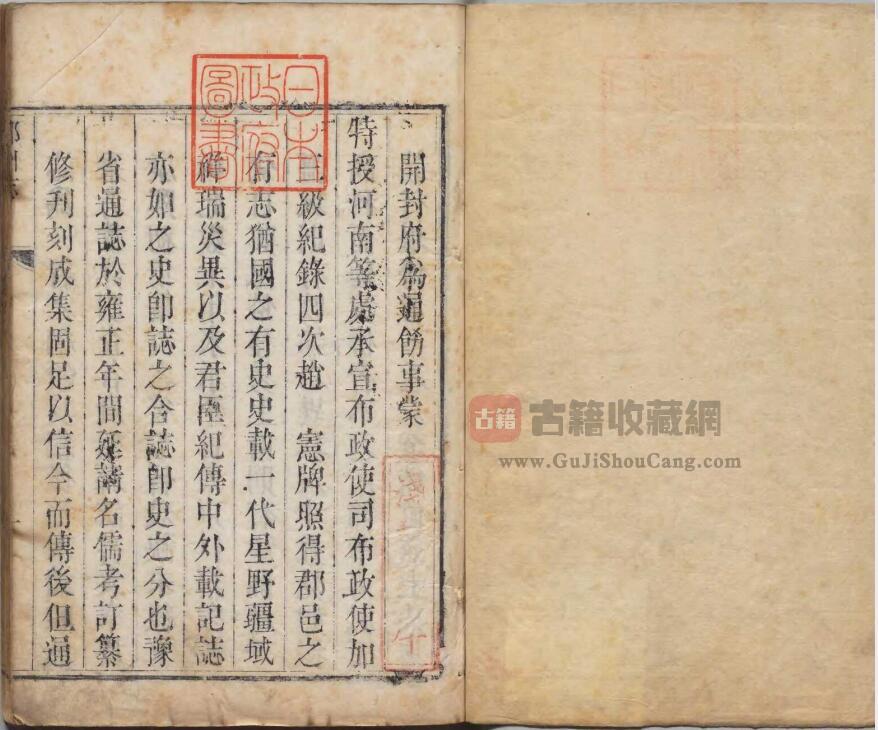 開封府為通飭事蒙
特授河南等處承宣布政使司布政使加
三級紀錄四次趙　憲牌照得郡邑之
有志猶國之有史史載一代星野疆域
祥瑞災異以及君臣紀傳中外載記誌
亦如之史即誌之合誌即史之分也豫
省通誌於雍正年間延請名儒考訂纂
修刊刻成集固足以信今而傳後但通
日本
政府
圖書
古籍
古籍收藏網
www.GuJiShouCang.com